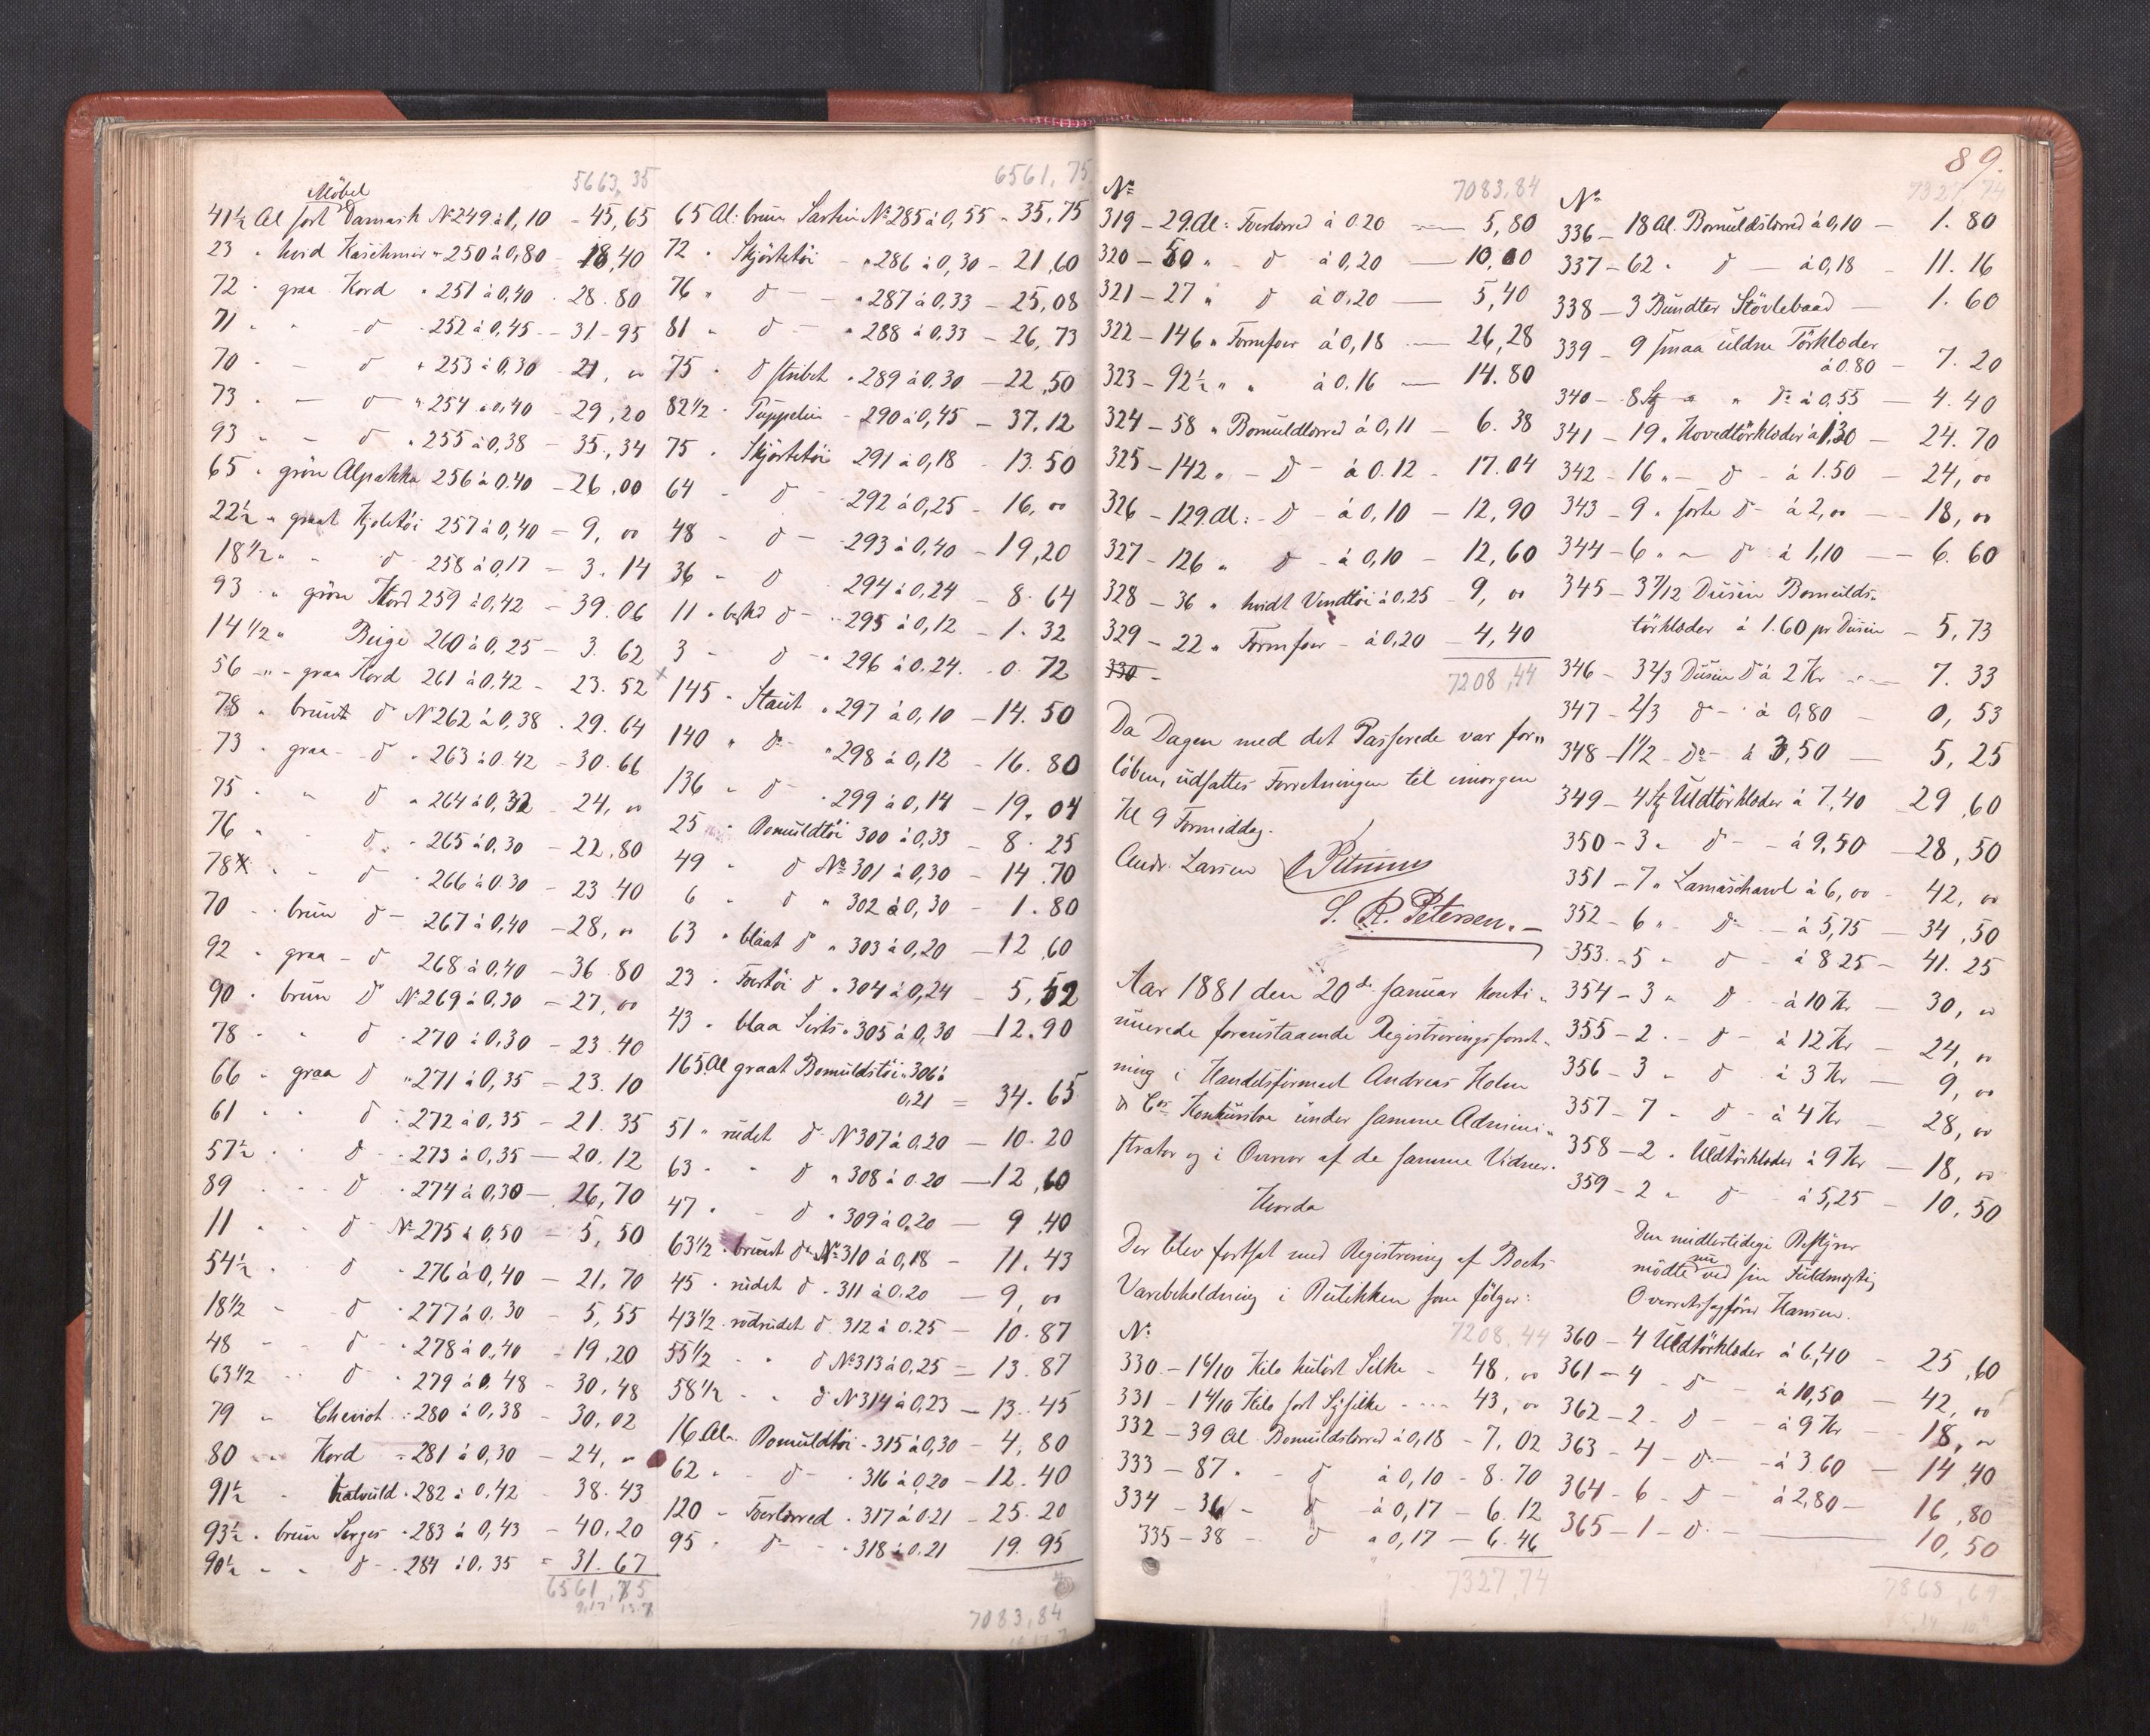 5663,35
Möbel
41½ Al sort Damask No 249 à 1,10 - 45,65
23 " hvid Kaschmir " 250 à 0,80 - 18,40
72 " graa Kord " 251 à 0,40 - 28.80
71 " " d " 252 à 0,45 - 31-95
70 " - d " 253 à 0,30 - 21, "
73 " - d " 254 à 0,40 - 29,20
93 " - d " 255 à 0,38 - 35,34
65 " grön Alpakka 256 à 0.40 - 26,00
22½ " graat Kjoletöi 257 à 0,40 = 9, 00
18½ " " d 258 à 0,17 = 3.14
93 " grön Kord 259 à 0,42 = 39.06
14½ " Beige 260 à 0,25 - 3.62
56 " graa Kord 261 à 0,42 - 23.52
78 " brunt d No 262 à 0,38 - 29.64
73 " graa - d " 263 à 0.42 = 30.66
75 " " d " 264 à 0,32 - 24, "
76 " " d " 265 à 0,30 - 22,80
78 " - d " 266 à 0.30 - 23.40
70 " brun d - 267 à 0,40 - 28, "
92 " graa - d 268 à 0,40 - 36.80
90 " brun do No 269 à 0,30 - 27, 00
78 " " d " 270 à 0,30 - 23.40
66 " graa d " 271 à 0,35 = 23.10
61 " " d " 272 à 0,35 - 21.35
57½ " " d " 273 à 0,35 - 20.12
89 " " d " 274 à 0,30 - 26,70
11 " " d No 275 à 0,50 - 5, 50
54½ " " d " 276 à 0,40 - 21,70
18½ " d " 277 à 0.30 - 5,55
48 " d " 278 à 0,40 - 19,20
63½ " d " 279 à 0.48 - 30,48
79 " Cheviot " 280 à 0,38 - 30,02
80 " Kord " 281 à 0,30 - 24, "
91½ " halvuld " 282 à 0,42 - 38.43
93½ " brun Serges " 283 à 0,43 - 40,20
90½ " " d " 284 à 0,35 = 31.67
6561,75
6561,75
65 Al: brun Sarkin No 285 à 0,55 - 35,75
72 " Skjörtetöi " 286 à 0,30 - 21,60
76 " d " 287 à 0,33 - 25,08
81 " d " 288 à 0,33 - 26,73
75 " d stribet " 289 à 0.30 - 22,50
82½ " Poppelin - 290 à 0,45 - 37.12
75 " Skjörtetöi 291 à 0,18 - 13.50
64 " d 292 à 0,25 - 16, 00
48 - d - 293 à 0,40 - 19,20
36 - d 294 à 0.24 - 8.64
11 " d - 295 à 0,12 - 1.32
3 - d - " 296 à 0.24. - 0.72
x 145 " Staut " 297 à 0,10 - 14.50
140 " do " 298 à 0,12 - 16.80
136 " d " 299 à 0,14 - 19.04
25 " Bomuldtöi 300 à 0,33 - 8.25
49 " d No 301 à 0,30 - 14.70
6 " d " 302 à 0,30 - 1.80
63 " blaat do " 303 à 0,20 - 12,60
23 " Foertöi d " 304 à 0,24 - 5,52
43 " blaa Sirts " 305 à 0,30 - 12.90
165 Al graat Bomuldstöi " 306 à
0,21 = 34.65
51 " rudet d No 307 à 0.20 - 10.20
63 " " d " 308 à 0.20 - 12,60
47 " - d " 309 à 0,20 - 9,40
63½ " brunt do No 310 à 0,18 - 11.43
45 " rudet d " 311 à 0.20 - 9, 00
43½ " rödrudet d 312 à 0.25 - 10.87
55½ " " d No 313 à 0,25 = 13.87
58½ " " d No 314 à 0,23 - 13.45
16 Al " Bomuldtöi " 315 à 0,30 - 4,80
62 " - d - " 316 à 0,20 - 12.40
120 " Foerlorred " 317 à 0.21 - 25.20
95 " do - " 318 à 0.21 19.95
7083,84
No 7083,84
319 - 29 Al: Foerlorred à 0.20 - 5,80
320 - 50 " - d à 0,20 - 10,00
321 - 27 " d à 0.20 - 5,40
322 - 146 " Formfoer à 0,18 - 26,28
323 - 92½ " " à 0.16 - 14.80
324 - 58 " Bomuldlorred à 0,11 - 6.38
325 - 142 " - d - à 0.12 - 17.04
326 - 129 Al: - d - à 0,10 - 12,90
327 - 126 " d - à 0,10 - 12,60
328 - 36 " hvidt Vendtöi à 0.25 - 9, 00
329 - 22 " Formfoer - à 0,20 - 4,40
330 - 7208,44
Da Dagen med det Passerede var for"
löben, udsattes Forretningen til imorgen
Kl 9 Formiddag.
Andr. Larsen
S. R. Petersen.
Aar 1881 den 20de Januar konti"
nuerede foranstaaende Registreringsforret-
ning i Handelsfirmaet Andreas Holm
& Cos Konkursbo under samme Admini"
strator og i Overvær af de samme Vidner.
Hvorda
Der blev fortsat med Registrering af Boets
Varebeholdning i Butikken som følger:
No 7208,44
330 - 16/10 Kilo kulört Silke - 48, 00
331 - 14/10 Kilo sort Sysilke - 43, 00
332 - 39 Al Bomuldslorred à 0,18 - 7,02
333 - 87 " - d à 0,10 - 8.70
334 - 36 - d à 0,17 - 6.12
335 - 38 - d à 0,17 - 6.46
7327,74
89.
No 7327,74
336 - 18 Al. Bomuldslorred à 0,10 - 1.80
337 - 62 " d - à 0,18 - 11.16
338 - 3 Bundter Stövlebaad - 1.60
339 - 9 smaa uldne Törklæder
à 0.80 - 7.20
340 - 8 St " do à 0,55 - 4.40
341 - 19 " Hovedtörklæder à 1,30 - 24.70
342 - 16 " - d - à 1.50 - 24, 00
343 - 9 " sorte d - à 2, 00 - 18, 00
344 - 6 " - do à 1,10 - 6.60
345 - 3 7/12 Dusin Bomulds"
törklæder à 1.60 pr Dusin - 5,73
346 - 3 2/3 Dusin d à 2 Kr - 7.33
347 - 2/3 do - à 0,80 - 0,53
348 - 1½ - Do - à 3,50 - 5,25
349 - 4 St Uldtörklæder à 7,40 29,60
350 - 3 " d - - à 9,50 - 28,50
351 - 7 " Lamaschawl à 6, 00 - 42, 00
352 - 6 " - do - à 5,75 - 34,50
353 - 5 " d - à 8 25 - 41.25
354 - 3 " d - à 10 Kr - 30, 00
355 - 2 " - d - à 12 Kr - 24, 00
356 - 3 " d à 3 Kr - 9, 00
357 - 7 - d - à 4 Kr - 28, 00
358 - 2 " Uldtörklæder à 9 Kr - 18, 00
359 - 2 " d - à 5,25 - 10,50
Den midlertidige Bestyrer
mödte nu ved sin Fuldmægtig
Overretssagförer Hansen.
360 - 4 Uldtörklæder à 6,40 - 25,60
361 - 4 - d - à 10,50 - 42, 00
362 - 2 - d - à 9 Kr - 18, 00
363 - 4 - d - à 3.60 - 14,40
364 - 6 - d - à 2,80 - 16,80
365 - 1 - d - 10,50
7868,69